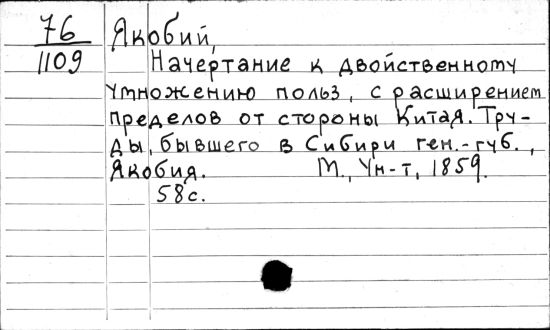 76 Якобий,
1109 Начертание к двойственному
умножению польз, с расширением
пределов от стороны Китая. Тру-
ды, бывшего в Сибири ген.-губ.,
Якобия. М., Ун-т, 1859.
58с.